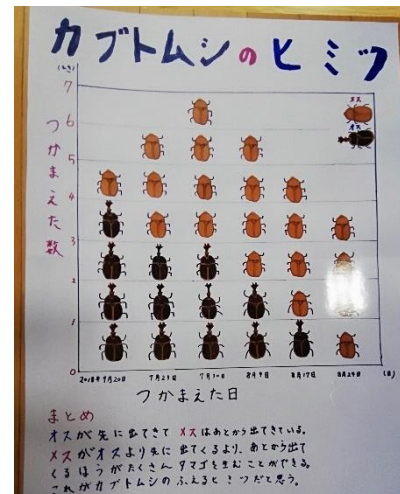 カブトムシのヒミツ
(ひき)
7
6
5
4
3
2
1
0
つかまえた数
メス
オス
2018年7月20日 7月23日 7月30日 8月9日 8月17日 8月24日 (日)
つかまえた日
まとめ
オスが先に出てきてメスはあとから出てきている。
メスがオスより先に出てくるより、あとから出て
くるほうがたくさんタマゴを生むことができる。
これがカブトムシのふえるヒミツだと思う。